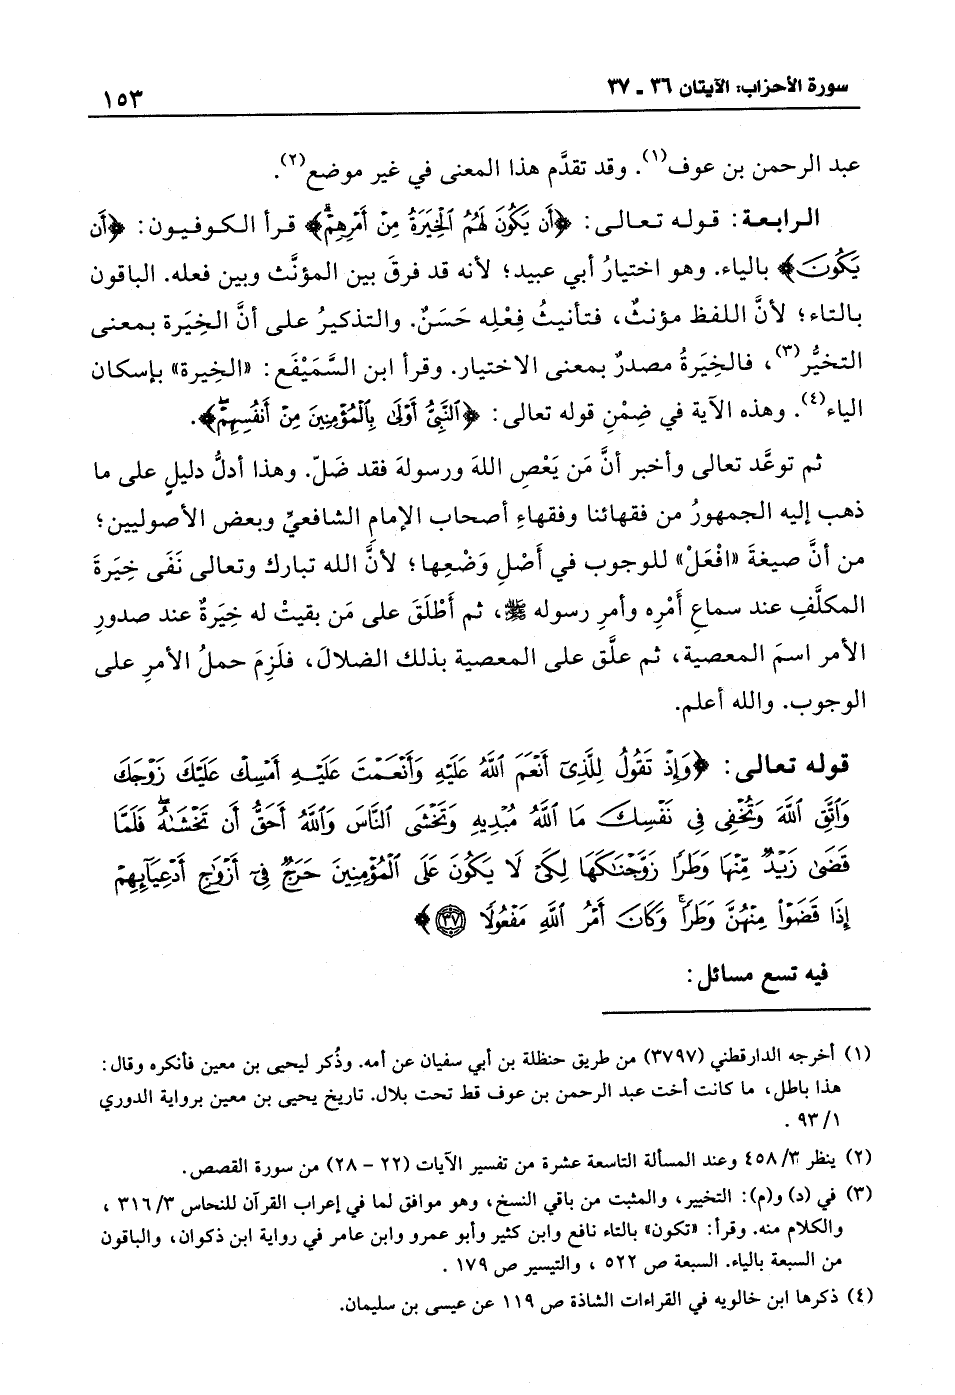 سورة الأحزاب: الآيتان ٣٦ - ٣٧
١٥٣
عبد الرحمن بن عوف(١). وقد تقدَّم هذا المعنى في غير موضع(٢).
الرابعة: قوله تعالى: ﴿أَن يَكُونَ لَهُمُ ٱلْخِيَرَةُ مِنْ أَمْرِهِمْ﴾ قرأ الكوفيون: ﴿أَن
يَكُونَ﴾ بالياء. وهو اختيارُ أبي عبيد؛ لأنه قد فرقَ بين المؤنَّث وبين فعله. الباقون
بالتاء؛ لأنَّ اللفظ مؤنثٌ، فتأنيثُ فِعْلِه حَسَنٌ. والتذكيرُ على أنَّ الخِيَرة بمعنى
التخيُّر(٣)، فالخِيَرةُ مصدرٌ بمعنى الاختيار. وقرأ ابن السَّمَيْفَع: «الخِيرة» بإسكان
الياء(٤). وهذه الآية في ضِمْنِ قوله تعالى: ﴿ٱلنَّبِىُّ أَوْلَىٰ بِٱلْمُؤْمِنِينَ مِنْ أَنفُسِهِمْ﴾.
ثم توعَّد تعالى وأخبر أنَّ مَن يَعْصِ اللهَ ورسولهَ فقد ضَلّ. وهذا أدلُّ دليلٍ على ما
ذهب إليه الجمهورُ من فقهائنا وفقهاءِ أصحاب الإمامِ الشافعيِّ وبعض الأصوليين؛
من أنَّ صيغةَ «افْعَلْ» للوجوب في أَصْلِ وَضْعِها؛ لأنَّ الله تبارك وتعالى نَفَى خِيَرةَ
المكلَّفِ عند سماعِ أَمْرِه وأمرِ رسوله ﷺ، ثم أَطْلَقَ على مَن بقيتْ له خِيَرةٌ عند صدورِ
الأمر اسمَ المعصية، ثم علَّق على المعصية بذلك الضلالَ، فلَزِمَ حملُ الأمرِ على
الوجوب. والله أعلم.
قوله تعالى: ﴿وَإِذْ تَقُولُ لِلَّذِىٓ أَنْعَمَ ٱللَّهُ عَلَيْهِ وَأَنْعَمْتَ عَلَيْهِ أَمْسِكْ عَلَيْكَ زَوْجَكَ
وَٱتَّقِ ٱللَّهَ وَتُخْفِى فِى نَفْسِكَ مَا ٱللَّهُ مُبْدِيهِ وَتَخْشَى ٱلنَّاسَ وَٱللَّهُ أَحَقُّ أَن تَخْشَىٰهُ فَلَمَّا
قَضَىٰ زَيْدٌ مِّنْهَا وَطَرًا زَوَّجْنَٰكَهَا لِكَىْ لَا يَكُونَ عَلَى ٱلْمُؤْمِنِينَ حَرَجٌ فِىٓ أَزْوَٰجِ أَدْعِيَآئِهِمْ
إِذَا قَضَوْا۟ مِنْهُنَّ وَطَرًا وَكَانَ أَمْرُ ٱللَّهِ مَفْعُولًا ۝٣٧﴾
فيه تسع مسائل:
(١) أخرجه الدارقطني (٣٧٩٧) من طريق حنظلة بن أبي سفيان عن أمه. وذُكر ليحيى بن معين فأنكره وقال:
هذا باطل، ما كانت أخت عبد الرحمن بن عوف قط تحت بلال. تاريخ يحيى بن معين برواية الدوري
٩٣/١ .
(٢) ينظر ٤٥٨/٣ وعند المسألة التاسعة عشرة من تفسير الآيات (٢٢ - ٢٨) من سورة القصص.
(٣) في (د) و(م): التخيير، والمثبت من باقي النسخ، وهو موافق لما في إعراب القرآن للنحاس ٣١٦/٣ ،
والكلام منه. وقرأ: «تكون» بالتاء نافع وابن كثير وأبو عمرو وابن عامر في رواية ابن ذكوان، والباقون
من السبعة بالياء. السبعة ص ٥٢٢ ، والتيسير ص ١٧٩ .
(٤) ذكرها ابن خالويه في القراءات الشاذة ص ١١٩ عن عيسى بن سليمان.